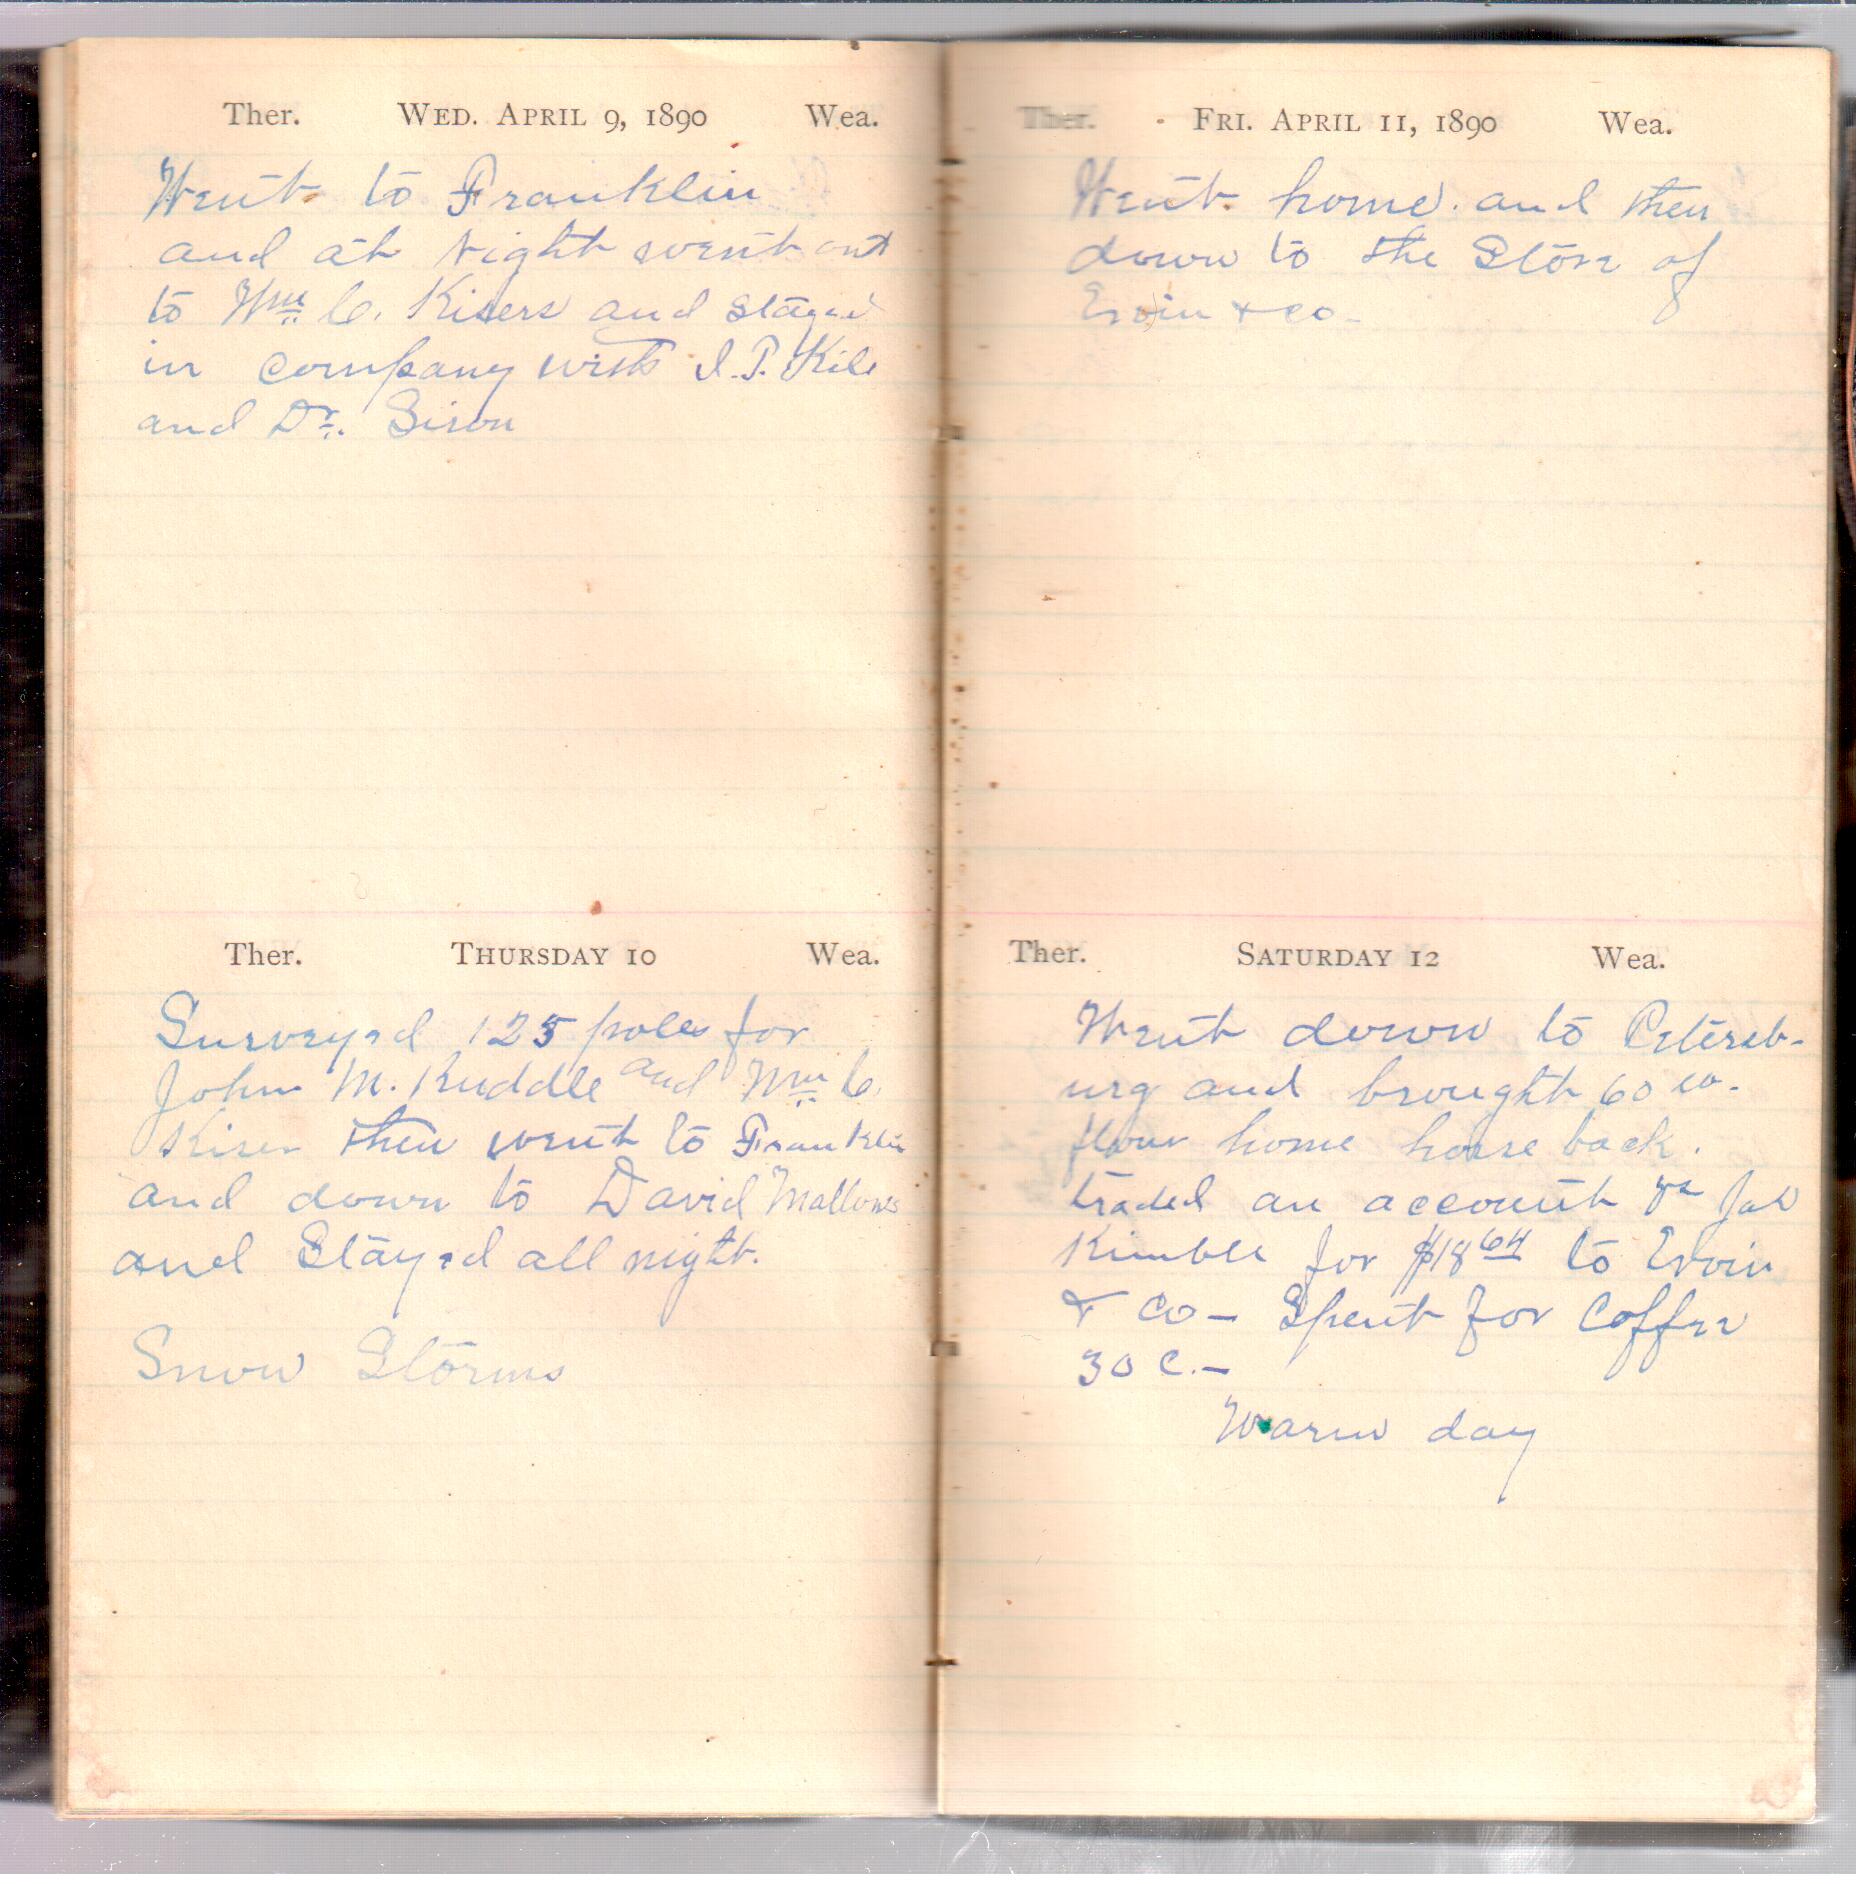 Ther. WED. APRIL 9, 1890 Wea.
Went to Franklin
and at night went out
to Wm C. Kisers and stayed
in company with I. P. Kile
and Dr. Sison
Ther. THURSDAY 10 Wea.
Surveyed 125 poles for
John M. Ruddle and Wm C.
Kiser then went to Franklin
and down to David Mallows
and Stayed all night.
Snow Storms
Ther. FRI. APRIL 11, 1890 Wea.
Went home. and then
down to the Store of
Ervin & Co-
Ther. SATURDAY 12 Wea.
Went down to Petersb-
urg and brought 60
flour home horse back.
traded an account
Kimble for $18 64 to Ervin
& Co – Spent for Coffee
30 C. –
Warm day